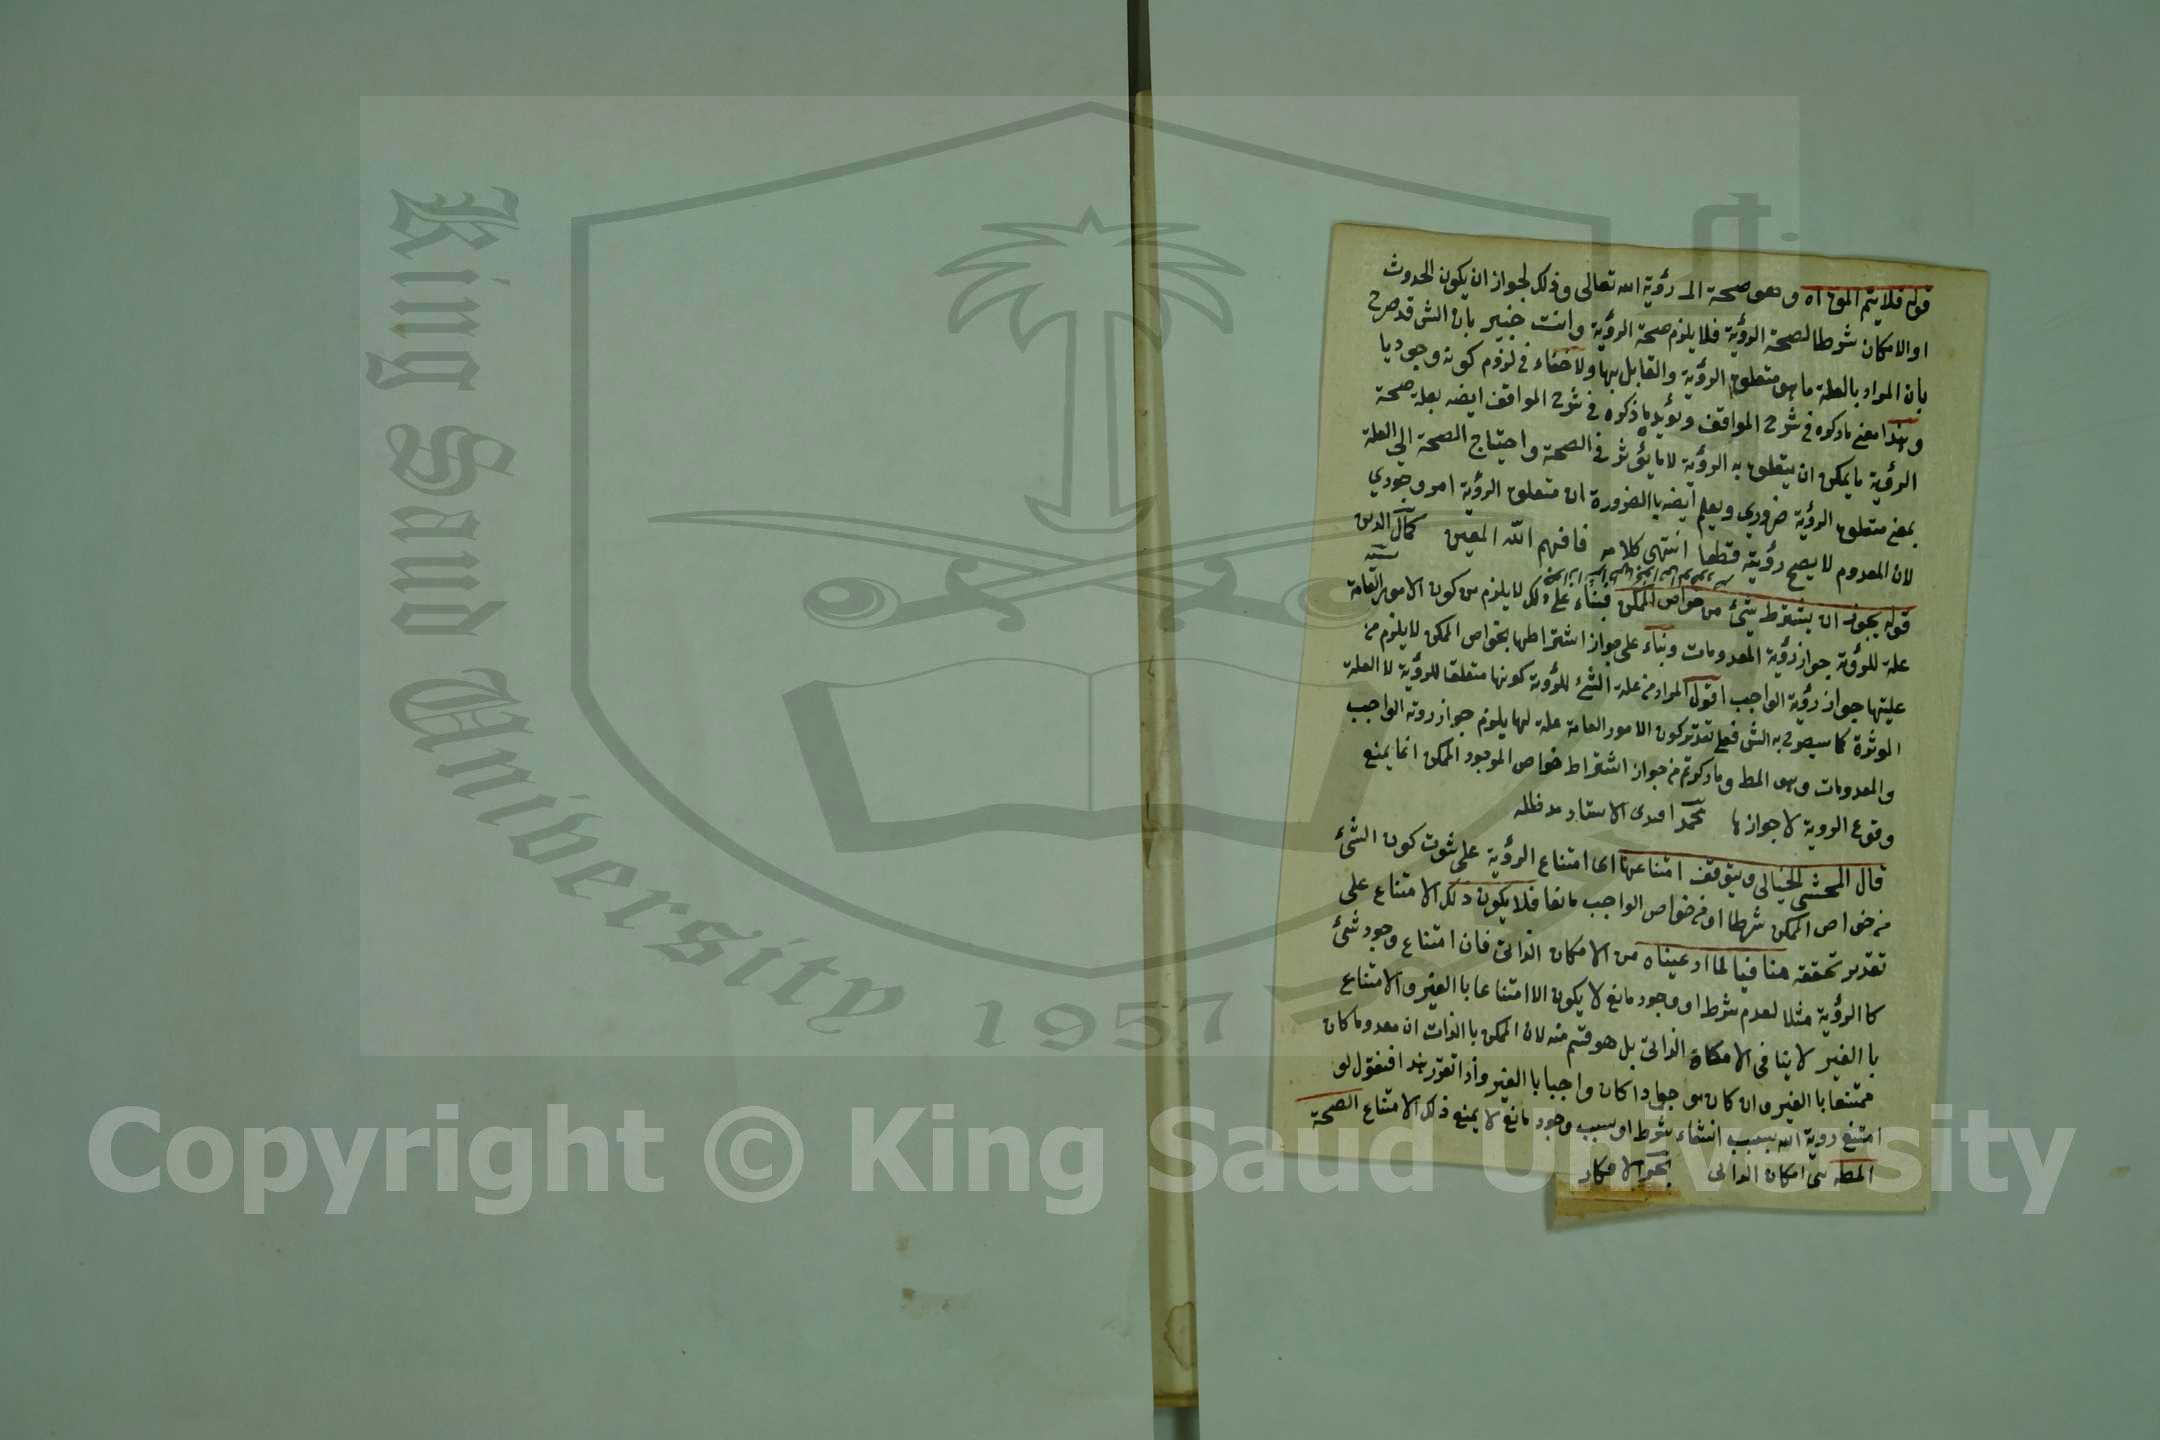 قوله فلا يتم المق اه وهو صحة الرؤية الله تعالى وذلك لجواز ان يكون الحدوث
او الامكان شرطا لصحة الرؤية فلا يلزم صحة الرؤية وانت خبير بان الش قد صرح
بان المراد بالعلة ما هو متعلق الرؤية والقابل بها ولا خفاء في لزوم كونه وجوديا
وهذا معنى ما ذكره في شرح المواقف ويؤيده ما ذكره في شرح المواقف ايضه بعلة صحة
الرؤية ما يمكن ان يتعلق به الرؤية لا ما يؤثر في الصحة واحتياج الصحة الى العلة
بمعنى متعلق الرؤية ضروري ويعلم ايضه با الضرورة ان متعلق الرؤية امر وجودي
لان المعدوم لا يصح رؤيته قطعا انتهى كلامه فافهم الله المعين كمال الدين
قوله يجوز ان يشترط بشئ من خواص الممكن فبناء على ذلك لا يلزم من كون الامور العامة
علة للرؤية جواز رؤية المعدومات وبناء على جواز اشتراطها بخواص الممكن لا يلزم من
عليتها جواز رؤية الواجب اقول المراد من علة الشئ للرؤية كونها متعلقا للرؤية لا العلة
الموثرة كما سيصرح به الش فعلى تقدير كون الامور العامة علة لها يلزم جواز رويته الواجب
والمعدومات وهو المط وما ذكرتم من جواز اشتراط خواص الموجود الممكن انما يمنع
وقوع الروية لا جوازها محمد افندى الاستاد مد ظله
قال المحشى الخيالى ويتوقف امتناعها اى امتناع الرؤية على ثبوت كون الشئ
من خواص الممكن شرطا او من خواص الواجب مانعا فلا يكون ذلك الامتناع على
تقدير تحققه منافيا لما ادعيناه من الامكان الذاتى فان امتناع وجود شئ
كا الرؤية مثلا لعدم شرط او وجود مانع لا يكون الا امتناعا با الغير والامتناع
با الغير لا ينافى الامكان الذاتى بل هو قسم منه لان الممكن با الذات ان معدوما كان
ممتنعا با الغير وان كان موجودا كان واجبا با الغير واذا تقرر هذا فنقول لو
امتنع روية الله بسبب انتفاء شرط او بسبب وجود مانع لا يمنع ذلك الامتناع الصحة
المطه هى امكان الذاتى بحر الافكار
King Saud University
1957
Copyright © King Saud University